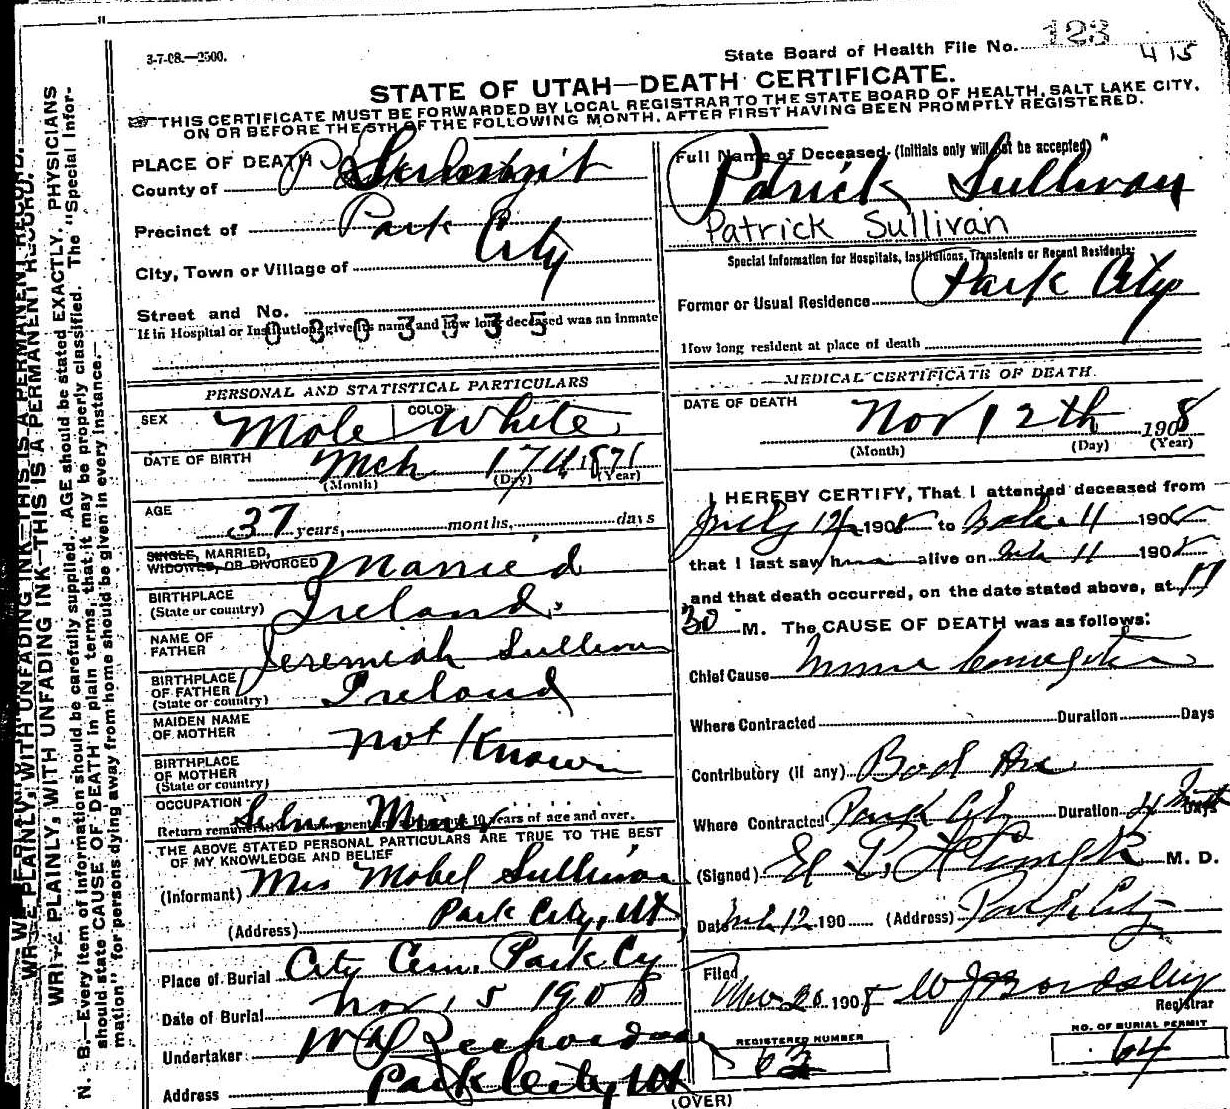 3-7-08.—2500.
State Board of Health File No. 123
415
STATE OF UTAH—DEATH CERTIFICATE.
THIS CERTIFICATE MUST BE FORWARDED BY LOCAL REGISTRAR TO THE STATE BOARD OF HEALTH, SALT LAKE CITY,
ON OR BEFORE THE 5TH OF THE FOLLOWING MONTH, AFTER FIRST HAVING BEEN PROMPTLY REGISTERED.
PLACE OF DEATH
County of Summit
Precinct of Park
City, Town or Village of City
Street and No.
If in Hospital or Institution, give its name and how long deceased was an inmate
0303535
PERSONAL AND STATISTICAL PARTICULARS
SEX Male COLOR White
DATE OF BIRTH Mch 17th 1871
(Month) (Day) (Year)
AGE
37 years, months, days
SINGLE, MARRIED,
WIDOWED, OR DIVORCED Married
BIRTHPLACE
(State or country) Ireland.
NAME OF
FATHER Jeremiah Sullivan
BIRTHPLACE
OF FATHER
(State or country) Ireland
MAIDEN NAME
OF MOTHER
Not Known
BIRTHPLACE
OF MOTHER
(State or country)
OCCUPATION
Return remunerative employment 10 years of age and over.
THE ABOVE STATED PERSONAL PARTICULARS ARE TRUE TO THE BEST
OF MY KNOWLEDGE AND BELIEF
(Informant) Mrs Mabel Sullivan
(Address) Park City, Ut
Place of Burial City Cem. Park Cy
Date of Burial Nov 15 1908
Undertaker
Address Park City Ut
(OVER)
Full Name of Deceased (Initials only will not be accepted)
Patrick Sullivan
Patrick Sullivan
Special Information for Hospitals, Institutions, Transients or Recent Residents:
Former or Usual Residence Park City
How long resident at place of death
MEDICAL CERTIFICATE OF DEATH.
DATE OF DEATH Nov 12th 1908
(Month) (Day) (Year)
I HEREBY CERTIFY, That I attended deceased from
July 1908 to 11 190
that I last saw h alive on 11 1908
and that death occurred, on the date stated above, at
30 M. The CAUSE OF DEATH was as follows:
Chief Cause Miners
Where Contracted Duration Days
Contributory (if any) Bad Air
Where Contracted Park City Duration Days
(Signed) M. D.
Date 12 190 (Address) Park City
Filed
Nov 20 1908
Registrar
REGISTERED NUMBER
62
NO. OF BURIAL PERMIT
64
WRITE PLAINLY, WITH UNFADING INK—THIS IS A PERMANENT RECORD.
WRITE PLAINLY, WITH UNFADING INK—THIS IS A PERMANENT RECORD.
N. B.—Every item of information should be carefully supplied. AGE should be stated EXACTLY. PHYSICIANS
should state CAUSE OF DEATH in plain terms, that it may be properly classified. The "Special Infor-
mation" for persons dying away from home should be given in every instance.